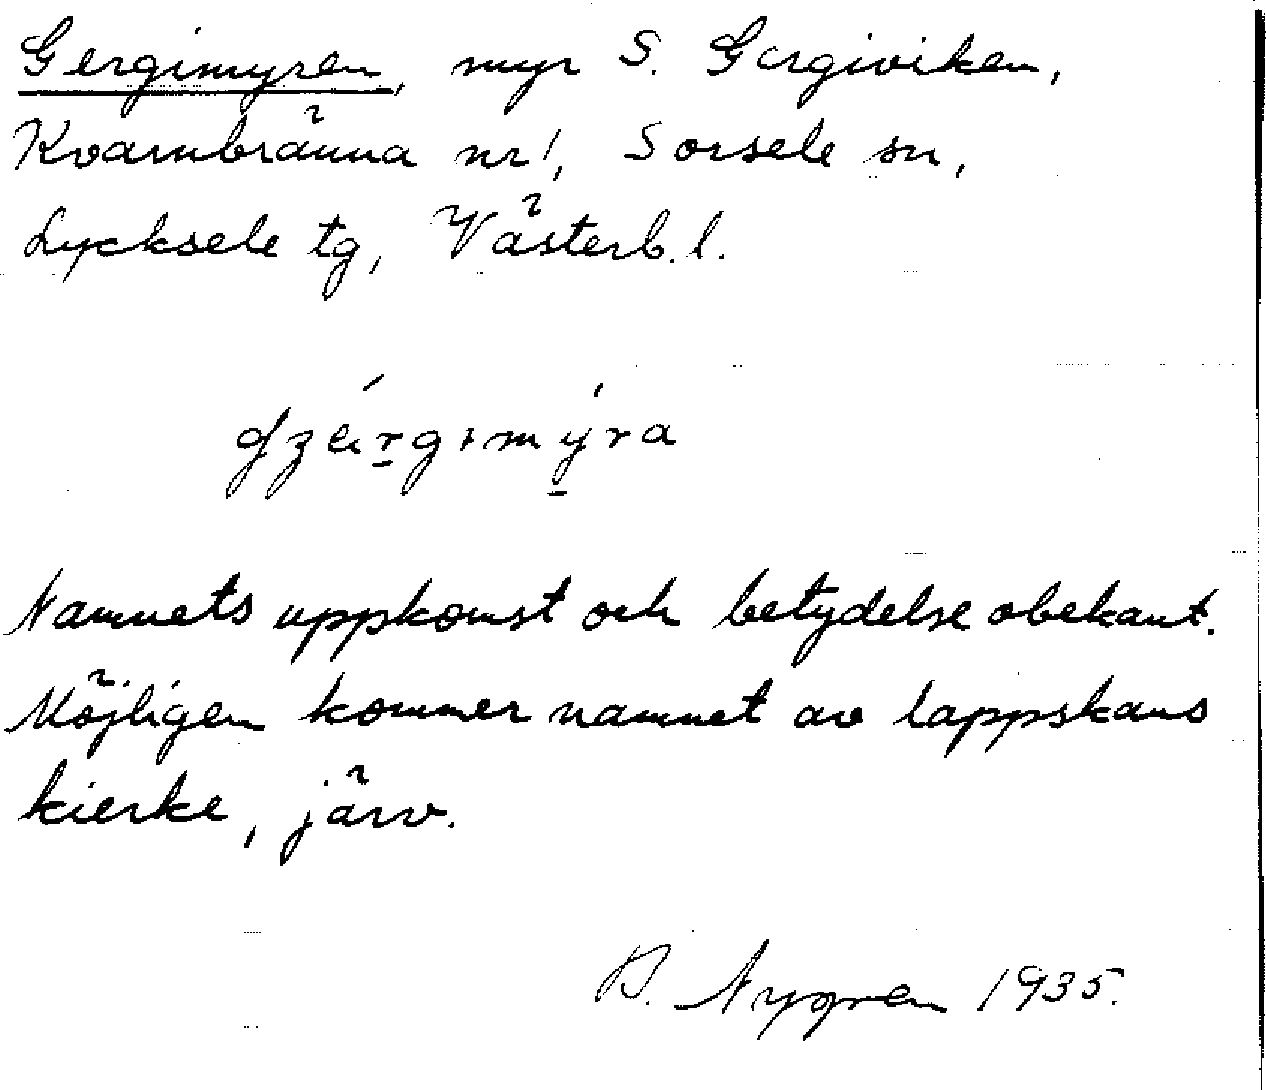 Gergimyren, myr S. Gergiviken,
Kvarnbränna nr 1, Sorsele sn,
Lycksele tg, Västerb. l.
Namnets uppkomst och betydelse obekant.
Möjligen kommer namnet av lappskans
kierke, järv.
Nygren 1935.